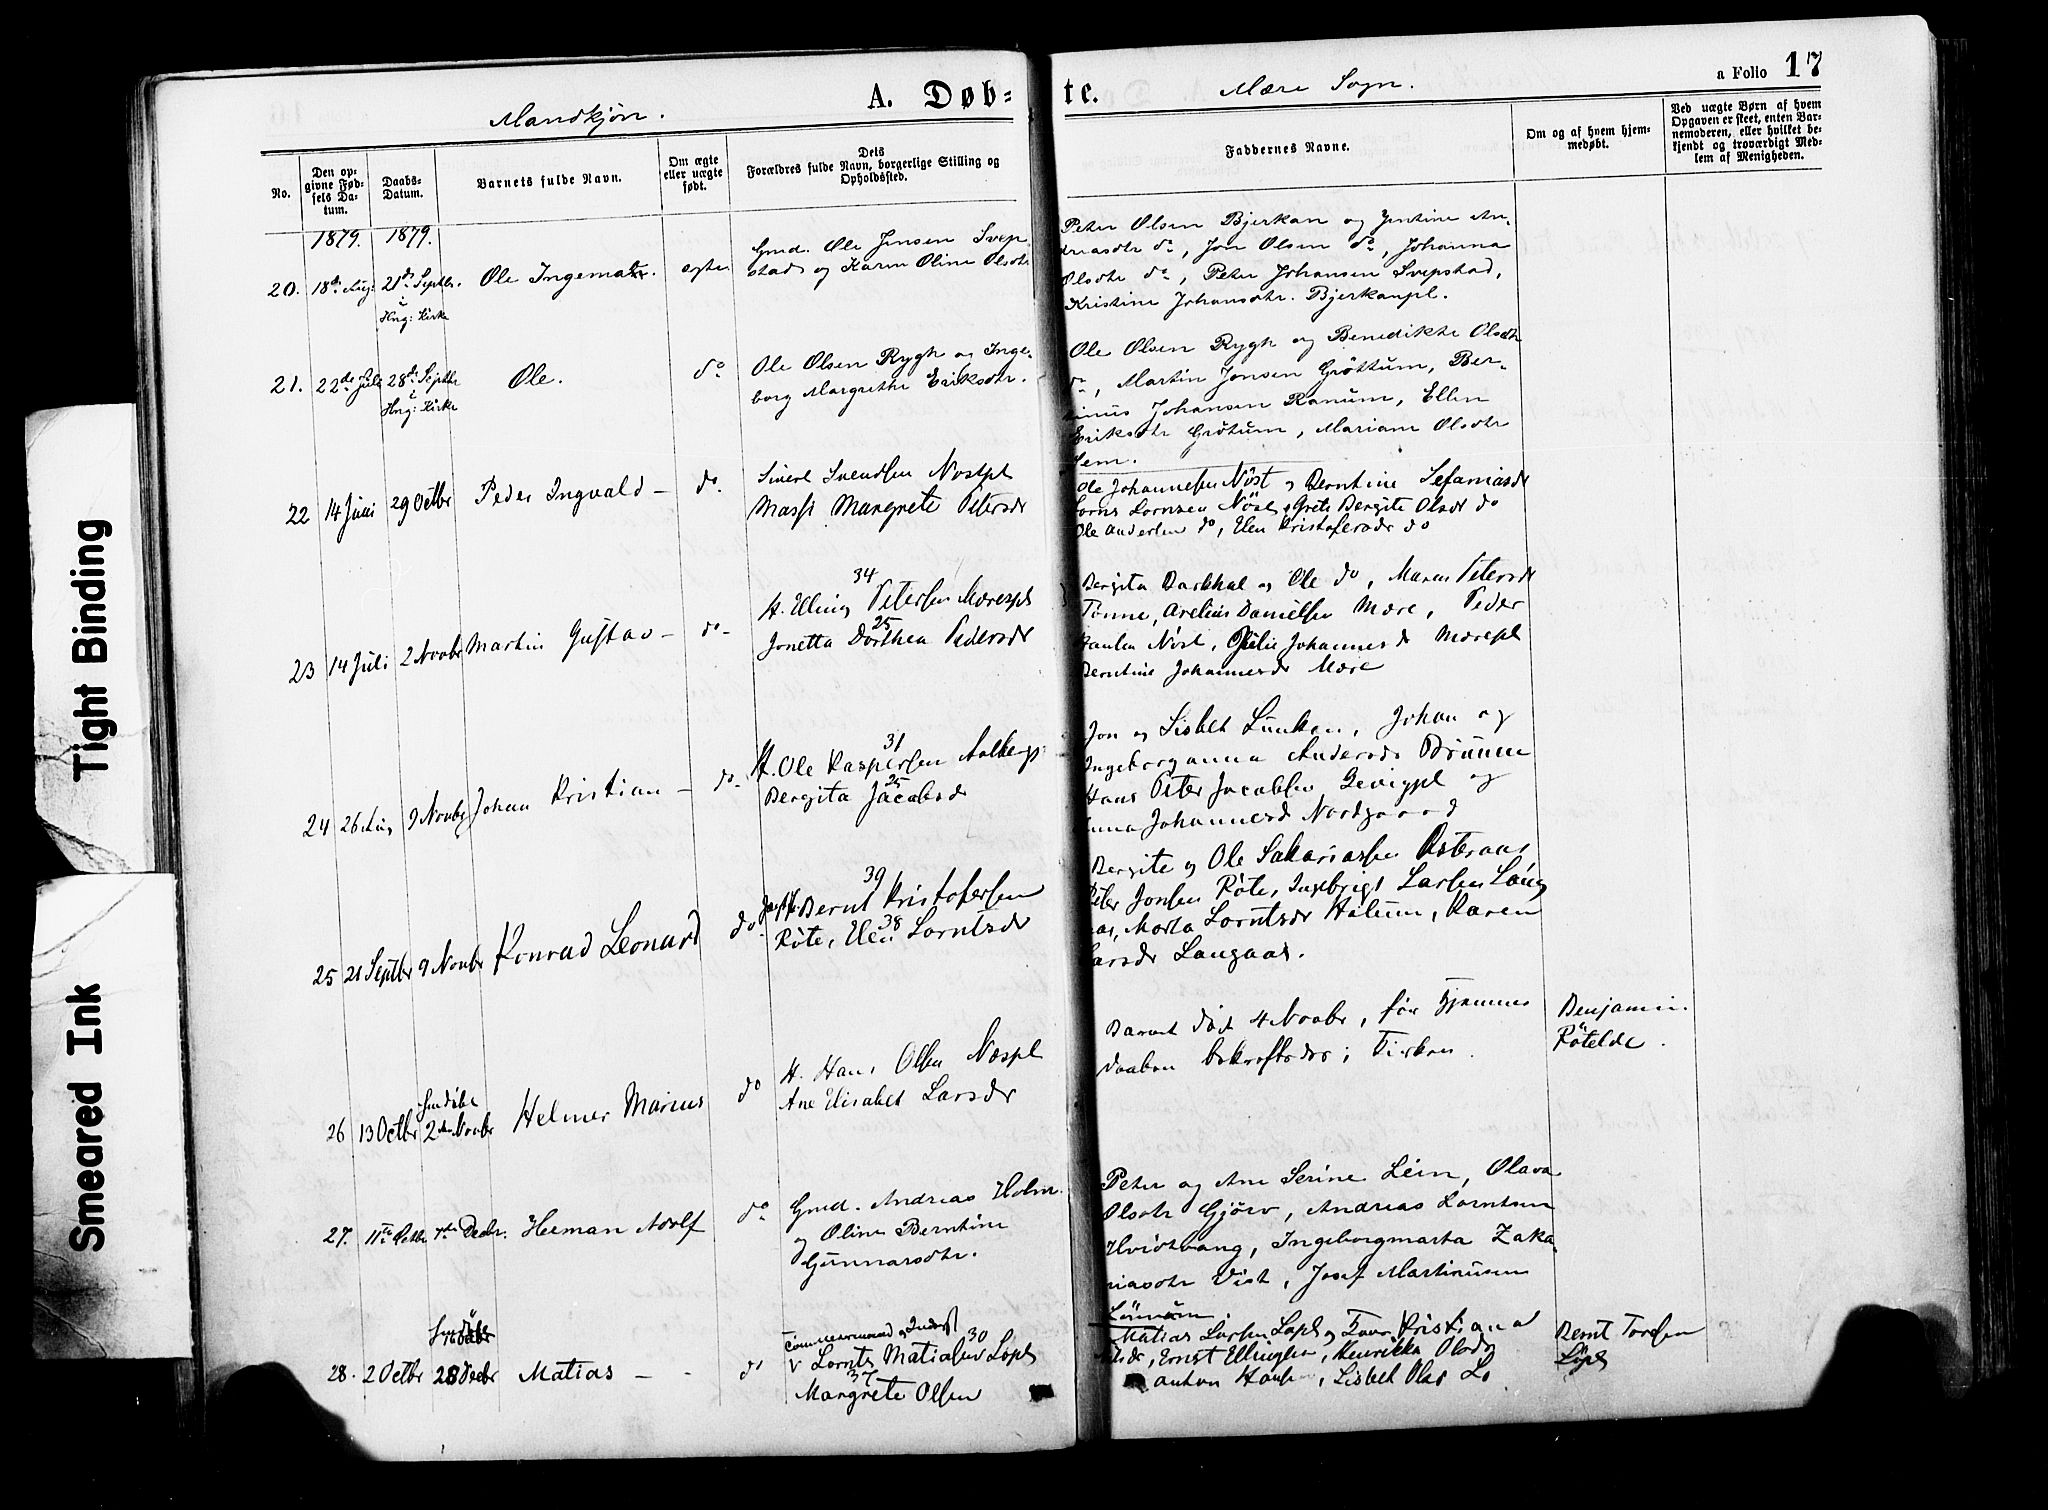 Tight Binding
Smeared Ink
Mandkjøn.
A. Døb=
te.
Mære Sogn.
a Folio 17
No.
Den op-
givne Fød-
sels Da-
tum.
Daabs-
Datum.
Barnets fulde Navn.
Om ægte
eller uægte
født.
Dets
Forældres fulde Navn, borgerlige Stilling og
Opholdssted.
Faddernes Navne.
Om og af hvem hjem-
medøbt.
Ved uægte Børn af hvem
Opgaven er skeet, enten Bar-
nemoderen, eller hvilket be-
kjendt og troværdigt Med-
lem af Menigheden.
1879. 1879.
20. 18de Aug: 21de Septbr. i Hng: Kirke
Ole Ingemar. ægte
Gmd. Ole Jensen Svep
stad og Karen Oline Olsdtr
Peter Olsen Bjerkan og Jentine An-
dreasdtr do, Jon Olsen do, Johanna
Olsdtr do, Peter Johansen Svepstad,
Kristine Johansdtr. Bjerkanpl.
21. 22de Juli 28de Septbr i Hng: Kirke
Ole. do
Ole Olsen Rygh og Inge-
borg Margrethe Eriksdtr.
Ole Olsen Rygh og Benedikte Olsdtr
do, Martin Jonsen Gröttum, Ber-
inus Johansen Ranum, Ellen
Eriksdtr Grötum, Mariane Olsdtr
Sem.
22 14 Juni 29 Octbr Peder Ingvald – do.
Sivert Svendsen Nöstpl
Massi Margrete Petersdr
Ole Johannesen Nöst og Berntine Sefaniasdr
Lorns Lornsen Nöst, Grete Bergite Olsdr do
Ole Andersen do, Elen Kristofersdr do
23 14 Juli 2 Novbr Martin Gustav – do –
34
H. Elling Petersen Mærespl
25
Jonetta Dorthea Pedersdr
Bergita Barkhal og Ole do, Maren Petersdr
Tönne, Arelius Danielsen Mære, Peder
Paulsen Nöst, Johannesd Mærepl
Berntine Johannesdr Mære
24 26 Aug 9 Novbr Johan Kristian – do.
31
H. Ole Kaspersen Aalbergs
25
Bergita Jacobsdr
Jon og Lisbet Lunken, Johan og
Ingeborganna Andersdr Brunen
Hans Peter Jacobsen Gevigpl og
Anna Johannesd Nordgaard
25 21 Septbr 9 Novbr Konrad Leonard do.
39
Bernt Kristofersen
38
Röte, Elen Lorntsdr
Bergite og Ole Sakariassen Österaas
Peter Jonsen Röte, Ingebrigt Larsen Laug
aas, Marta Lorntsdr Hatum, Karen
Larsdr Laugaas.
26 13 Octbr 2den Novbr Helmer Marius do
H. Hans Olsen Næspl
Ane Elisabet Larsdr
Barnet död 4 Novbr, för Hjemme
daaben bekræftedes i Kirken.
Benjamin
Rötelde.
27. 11te Octbr 7de Decbr. Herman Adolf do.
Gmd. Andreas Holm.
og Oline Berntine
Gunnarsdtr.
Peter og Ane Serine Lein, Olava
Olsdtr Gjörv, Andreas Lorntsen
Hvidtvang, Ingeborgmarta Zaka-
riasdtr Vist, Josef Martinusen
28. 2 Octbr 28 Decbr Matias – - do
30
v Lornts Matiasen Löpl
37
Margrete Olsen
Matias Larsen Löpl og Kristiana
Nilsdr, Ernst Ellingsen, Henrikka Olsdr
Anton Hans, Lisbet Olsd
Bernt Torsen
Löpl